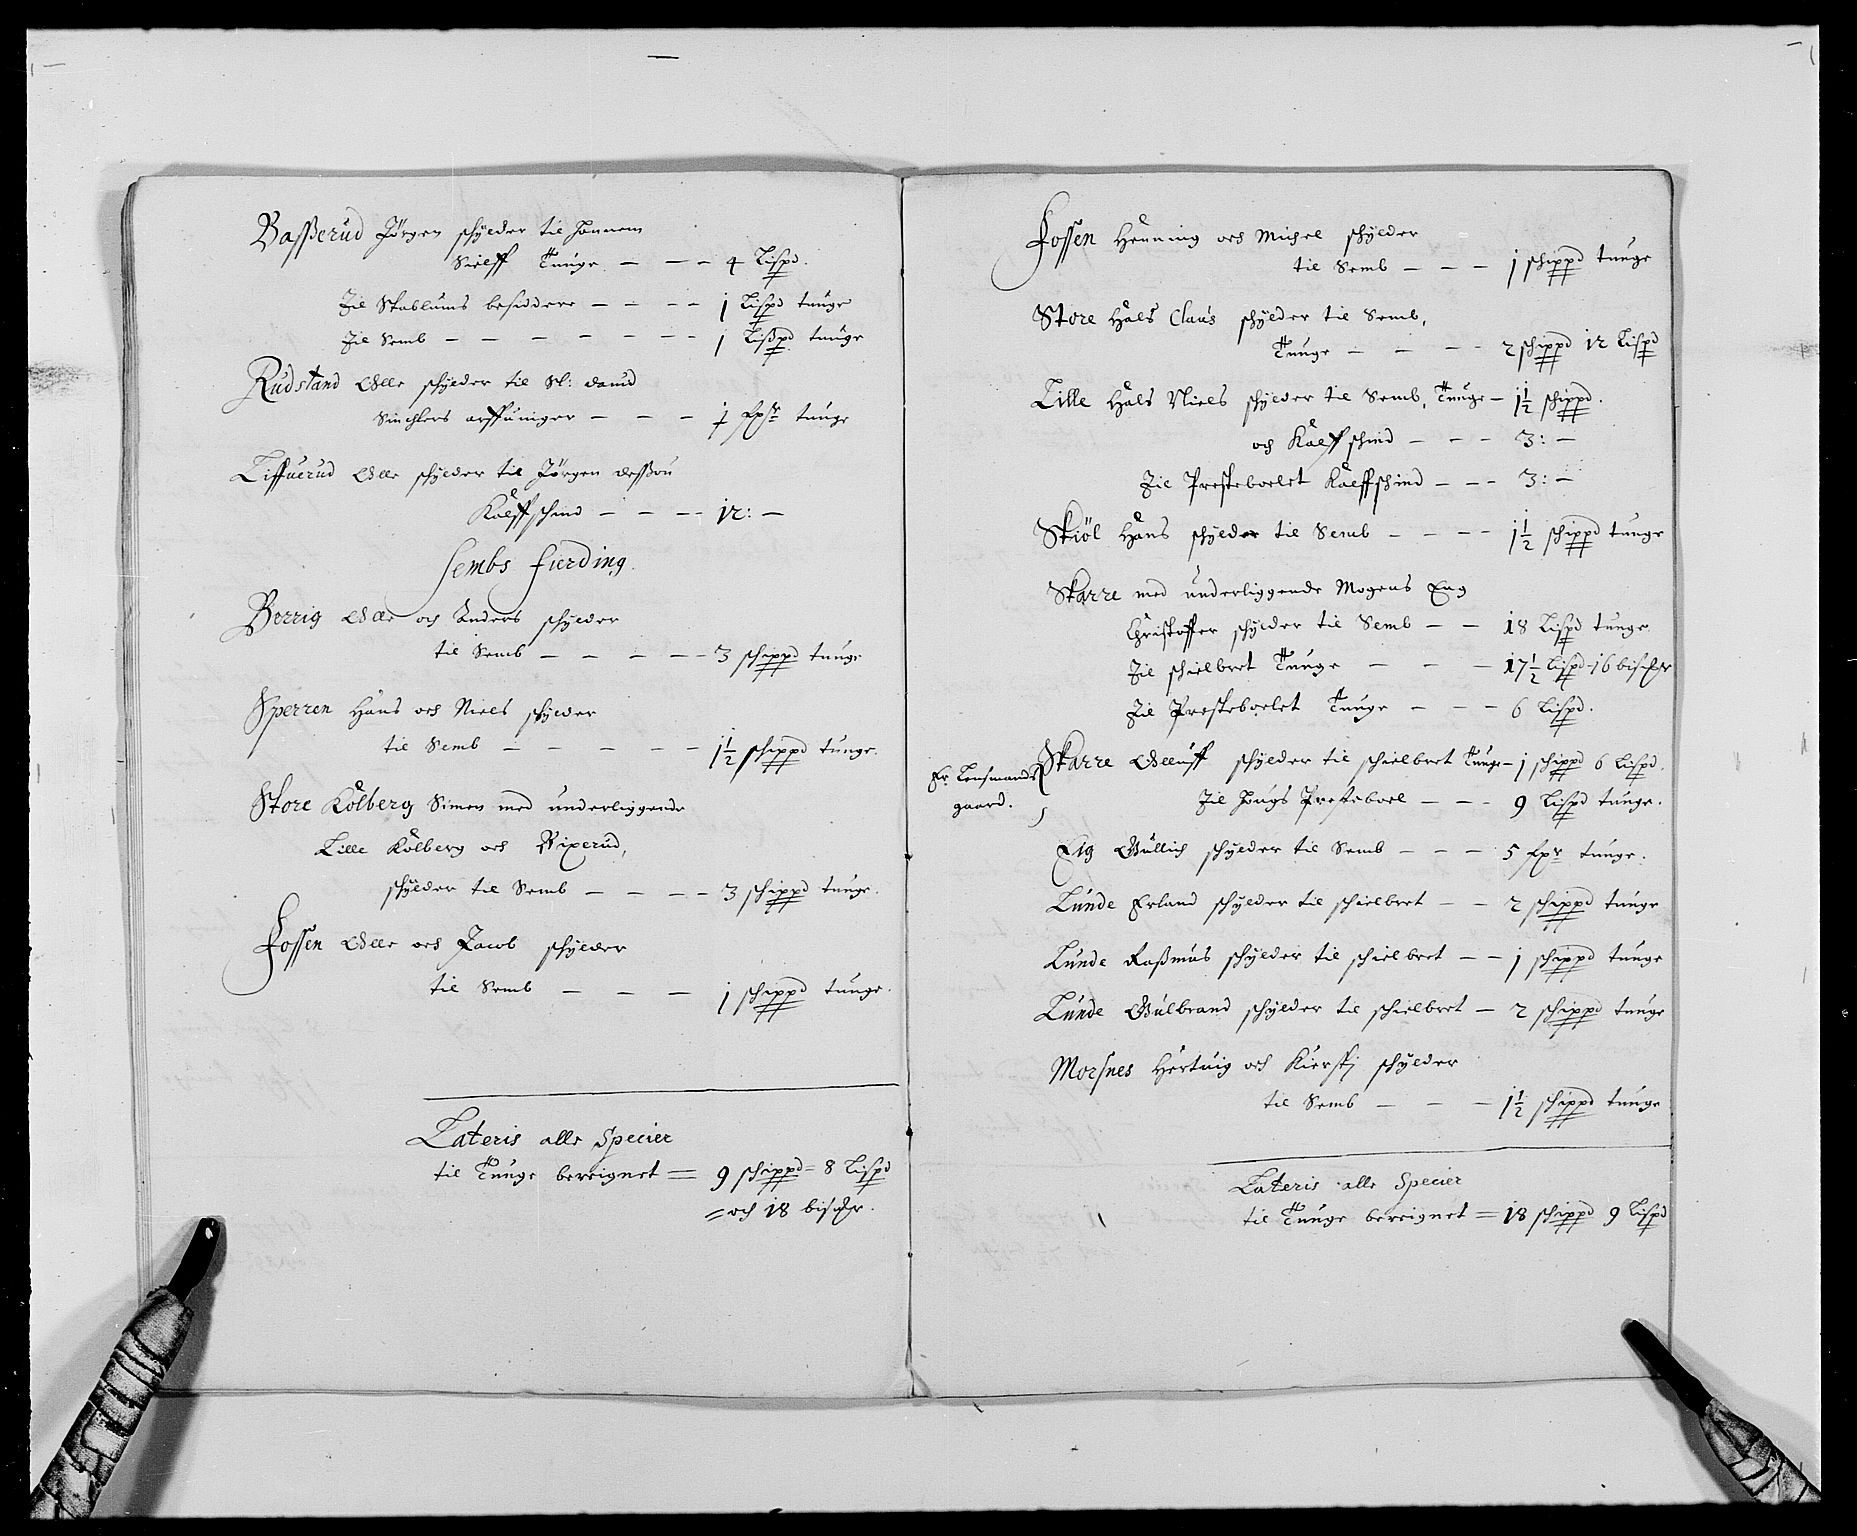 Basserud Jørgen schylder til hannem
Sielff Tunge - - - 4 Lispd.
Til Skablums besiddere - - - - 1 Lispd tunge
Til Semb - - - - - - - 1 Lispd tunge
Rudstand Olle schylder til Sl: David
Sinchlers arffuinger - - - tunge
Tiffuerud Olle schylder til Jørgen
Kalffschind - - - - 12: -
Sembs fierding.
Berrig Olle och Anders schylder
til Semb - - - - - 3 schippd tunge
Sperren Hans och Niels schylder
til Semb - - - - - 1½ schippd tunge.
Store Kolberg Simen med underliggende
Lille Kolberg och Vixerud,
schylder til Semb - - - - 3 schippd tunge.
Fossen Olle och Jacob schylder
til Semb - - - 1 schippd tunge.
Lateris alle Specier
til Tunge bereignet = 9 schippd = 8 Lispd
= och 18 bischr.
Fossen Henning och Michel schylder
til Semb - - - 1 schippd tunge
Store Hals Claus schylder til Semb,
Tunge - - - - 2 schippd 12 Lispd
Lille Hals Niels schylder til Semb, Tunge - 1½ schippd.
och Kalffschind - - - 3: -
Til Presteboelet Kalffschind - - - 3: -
Skiöl Hans schylder til Semb - - - - 1½ schippd tunge
Skarre med underliggende Mogens Eng
Christoffer schylder til Semb - - 18 Lispd tunge.
Til schielbret Tunge - - - 17½ Lispd - 16 bischr
Til Presteboelet Tunge - - - 6 Lispd.
Er Lensmands
gaard.
Skarre Olluff schylder til schielbret Tunge - 1 schippd 6 Lispd.
Til Haugs Presteboel - - - 9 Lispd tunge.
Eig Gullich schylder til Semb - - - 5 tunge.
Lunde Erland schylder til schielbret - - 2 schippd tunge
Lunde Rasmus schylder til schielbret - - 1 schippd tunge
Lunde Gulbrand schylder til schielbret - 2 schippd tunge
Morsnes Hertuig och schylder
til Semb - - - 1½ schippd tunge
Lateris alle Specier
til Tunge bereignet = 18 schippd 9 Lispd